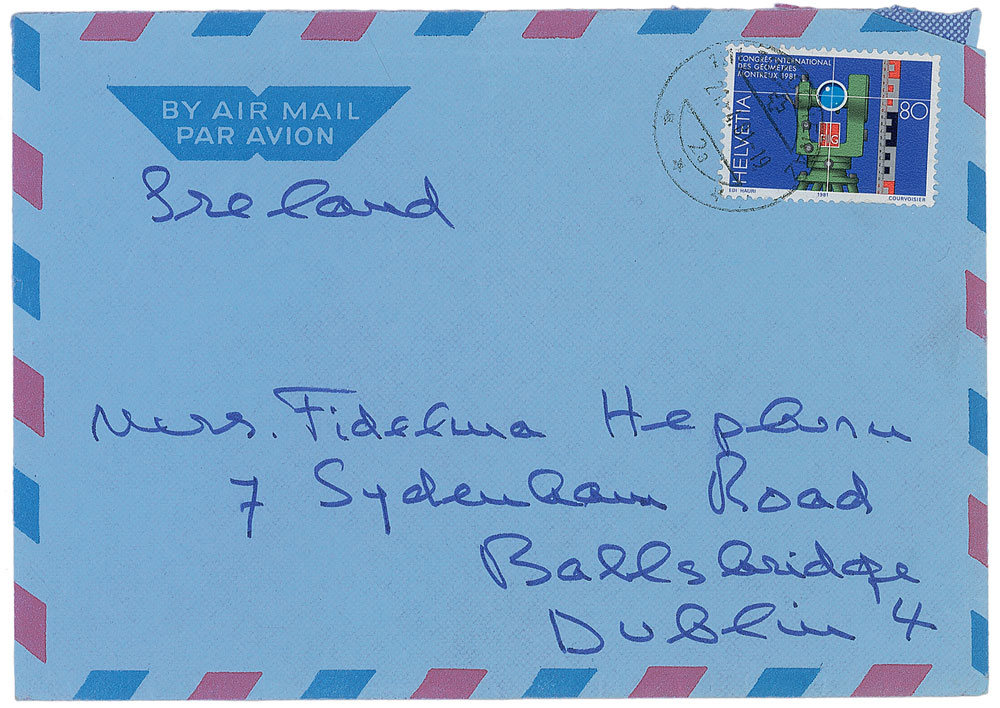 BY AIR MAIL
PAR AVION
CONGRÈS INTERNATIONAL
DES GÉOMÈTRES
MONTREUX 1981
HELVETIA
80
EDI HAURI
1981
COURVOISIER
Ireland
Mrs. Fidelma Hepburn
7 Sydenham Road
Ballsbridge
Dublin 4